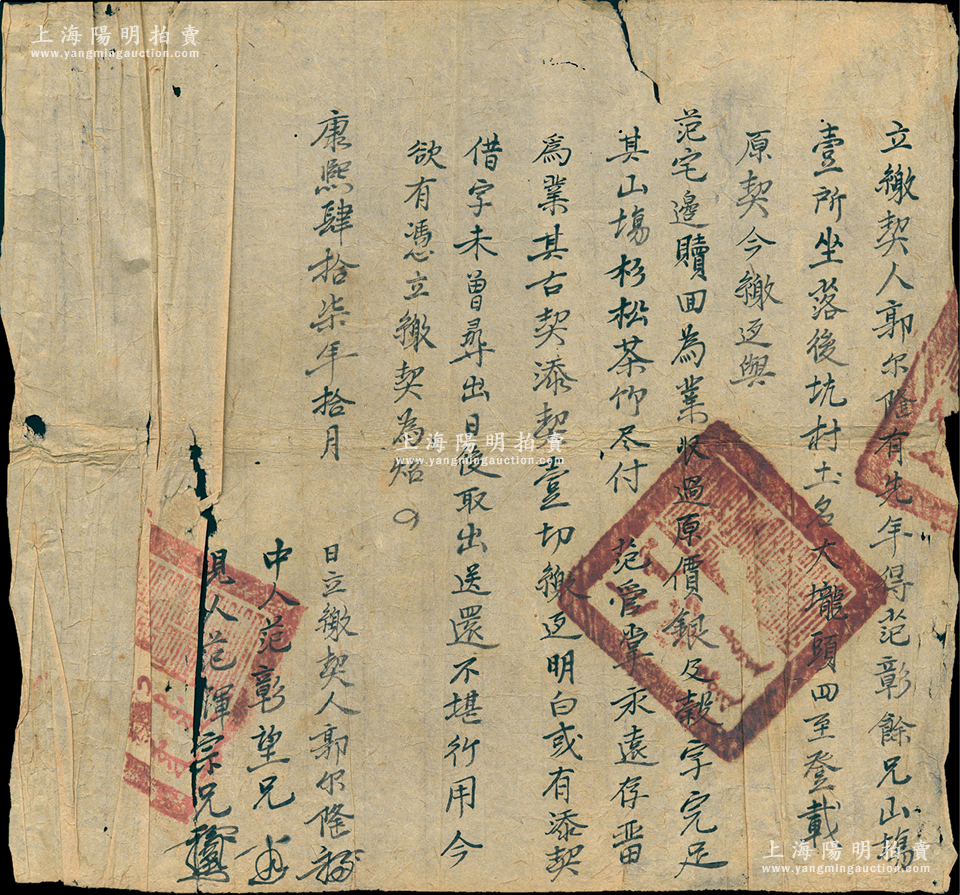 上海陽明拍賣
www.yangmingauction.com
立繳契人郭尔隆有先年得范彰餘兄山塲
壹所坐落後坑村土名大壠頭四至登載
原契今繳还與
范宅邊贖囬為業收過原價銀及穀字完足
其山塲杉松茶竹尽付 范管掌永遠存畱
爲業其右契添契壹切繳还明白或有添契
借字未曽尋出日後取出送還不堪行用今
欲有憑立繳契為炤
康熙肆拾柒年拾月
日立繳契人郭尔隆
中人范彰望兄
見人范渾宗兄
上海陽明拍賣
www.yangmingauction.com
上海陽明拍賣
www.yangmingauction.com